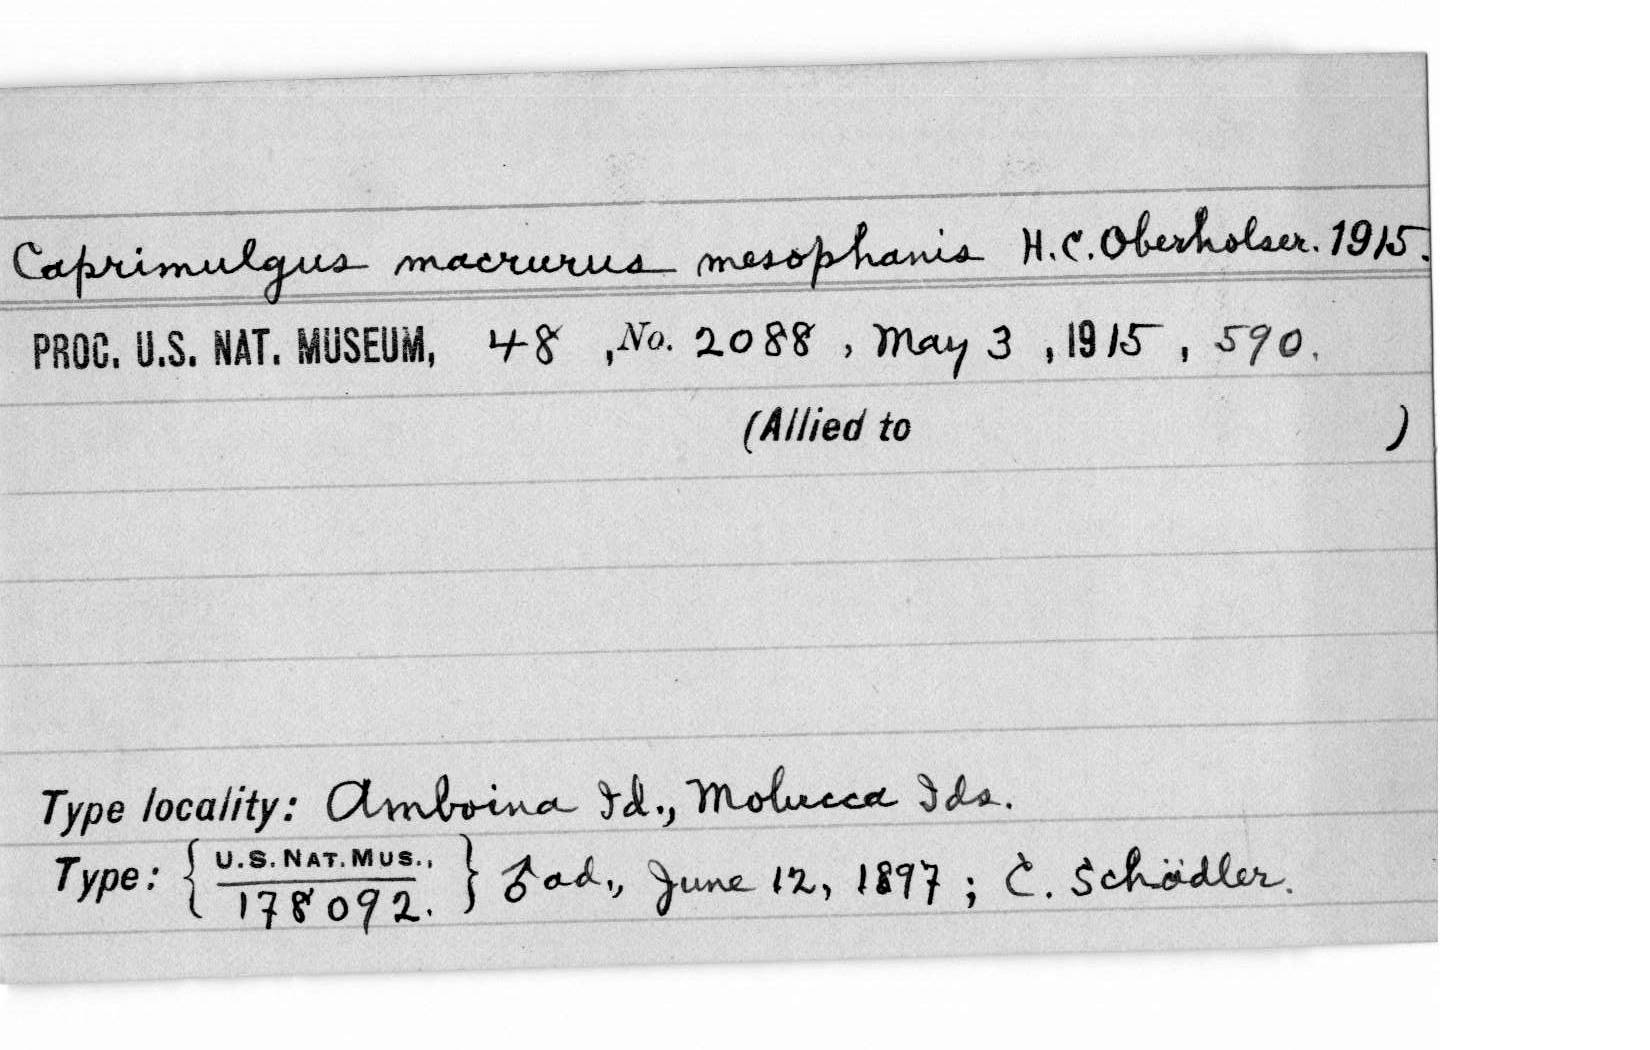 Caprimulgus macrurus mesophanis H.C. Oberholser. 1915.
PROC. U.S. NAT. MUSEUM, 48, No. 2088, May 3, 1915, 590.
(Allied to )
Type locality: Amboina Id., Molucca Ids.
Type: { U.S. NAT. MUS., 178092. } ♂ ad., June 12, 1897; C. Schädler.